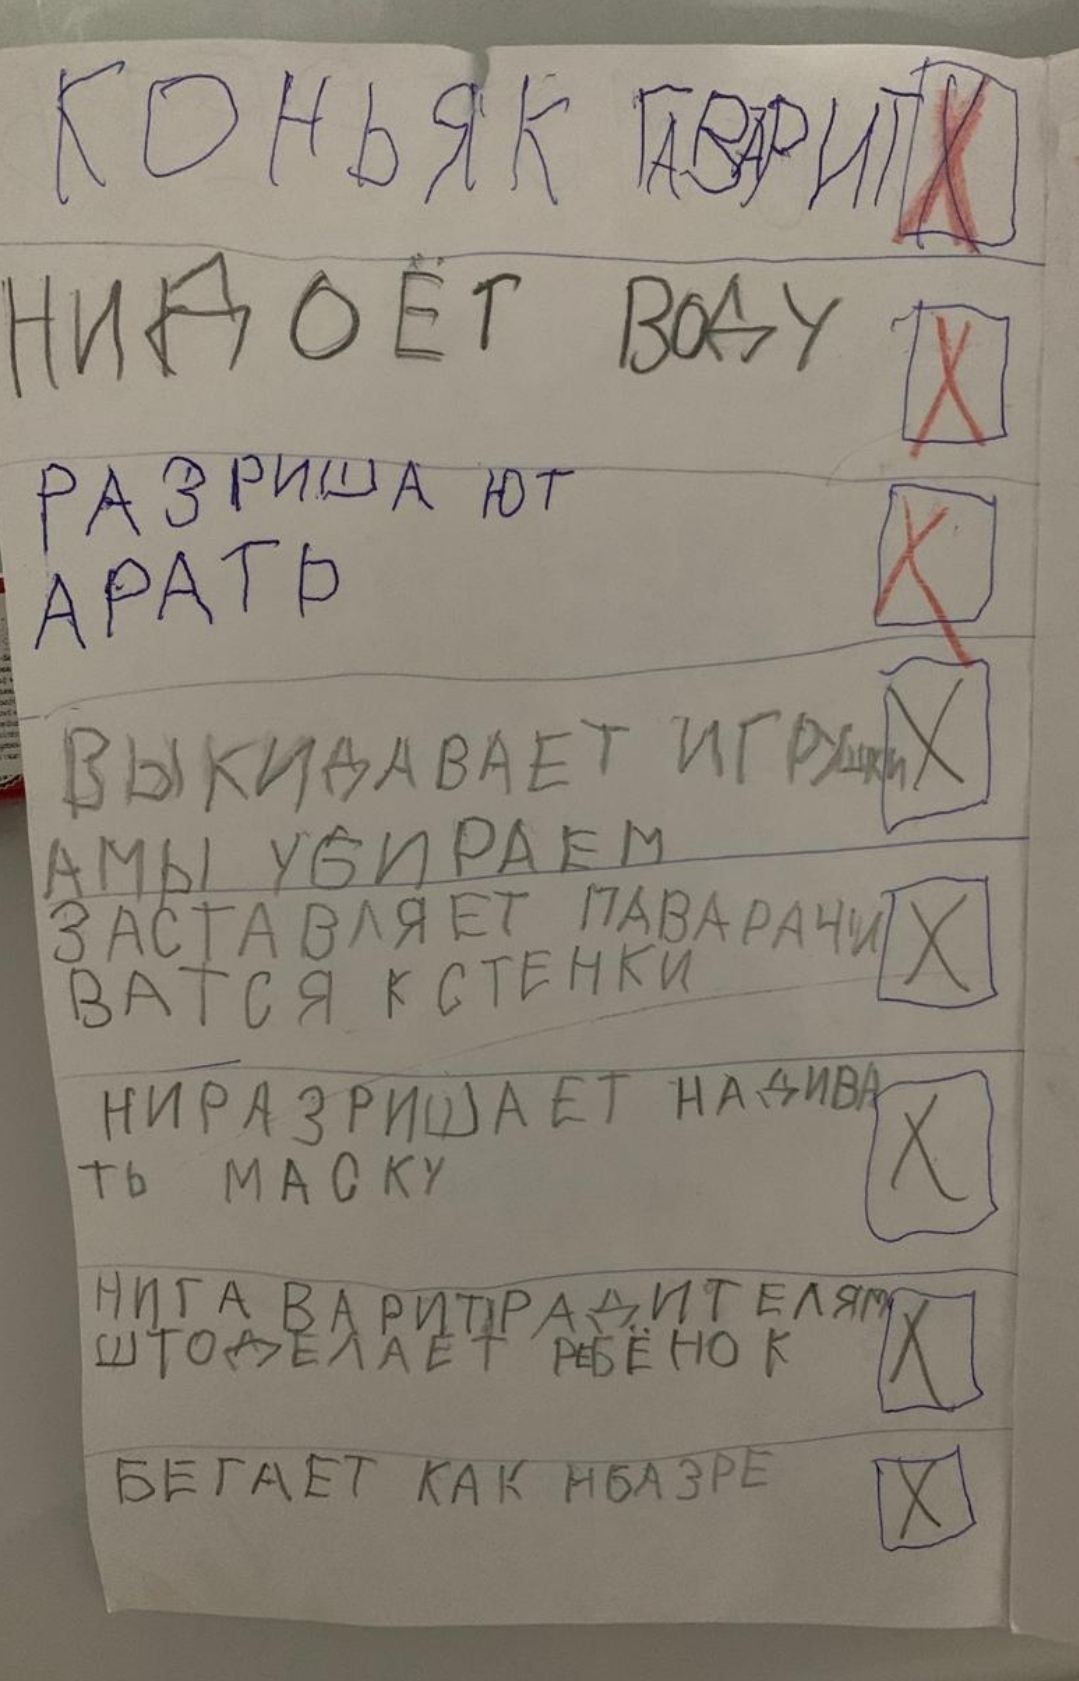 КОНЬЯК ГАВАРИТ
НИДОЁТ ВОДУ
РАЗРИШАЮТ
АРАТЬ
ВЫКИДАВАЕТ ИГРУШКИ
АМЫ УБИРАЕМ
ЗАСТАВЛЯЕТ ПАВАРАЧИ
ВАТСЯ К СТЕНКИ
НИРАЗРИШАЕТ НАДИВА
ТЬ МАСКУ
НИГАВАРИТ РАДИТЕЛЯМ
ШТОДЕЛАЕТ РЕБЁНОК
БЕГАЕТ КАК НБАЗРЕ